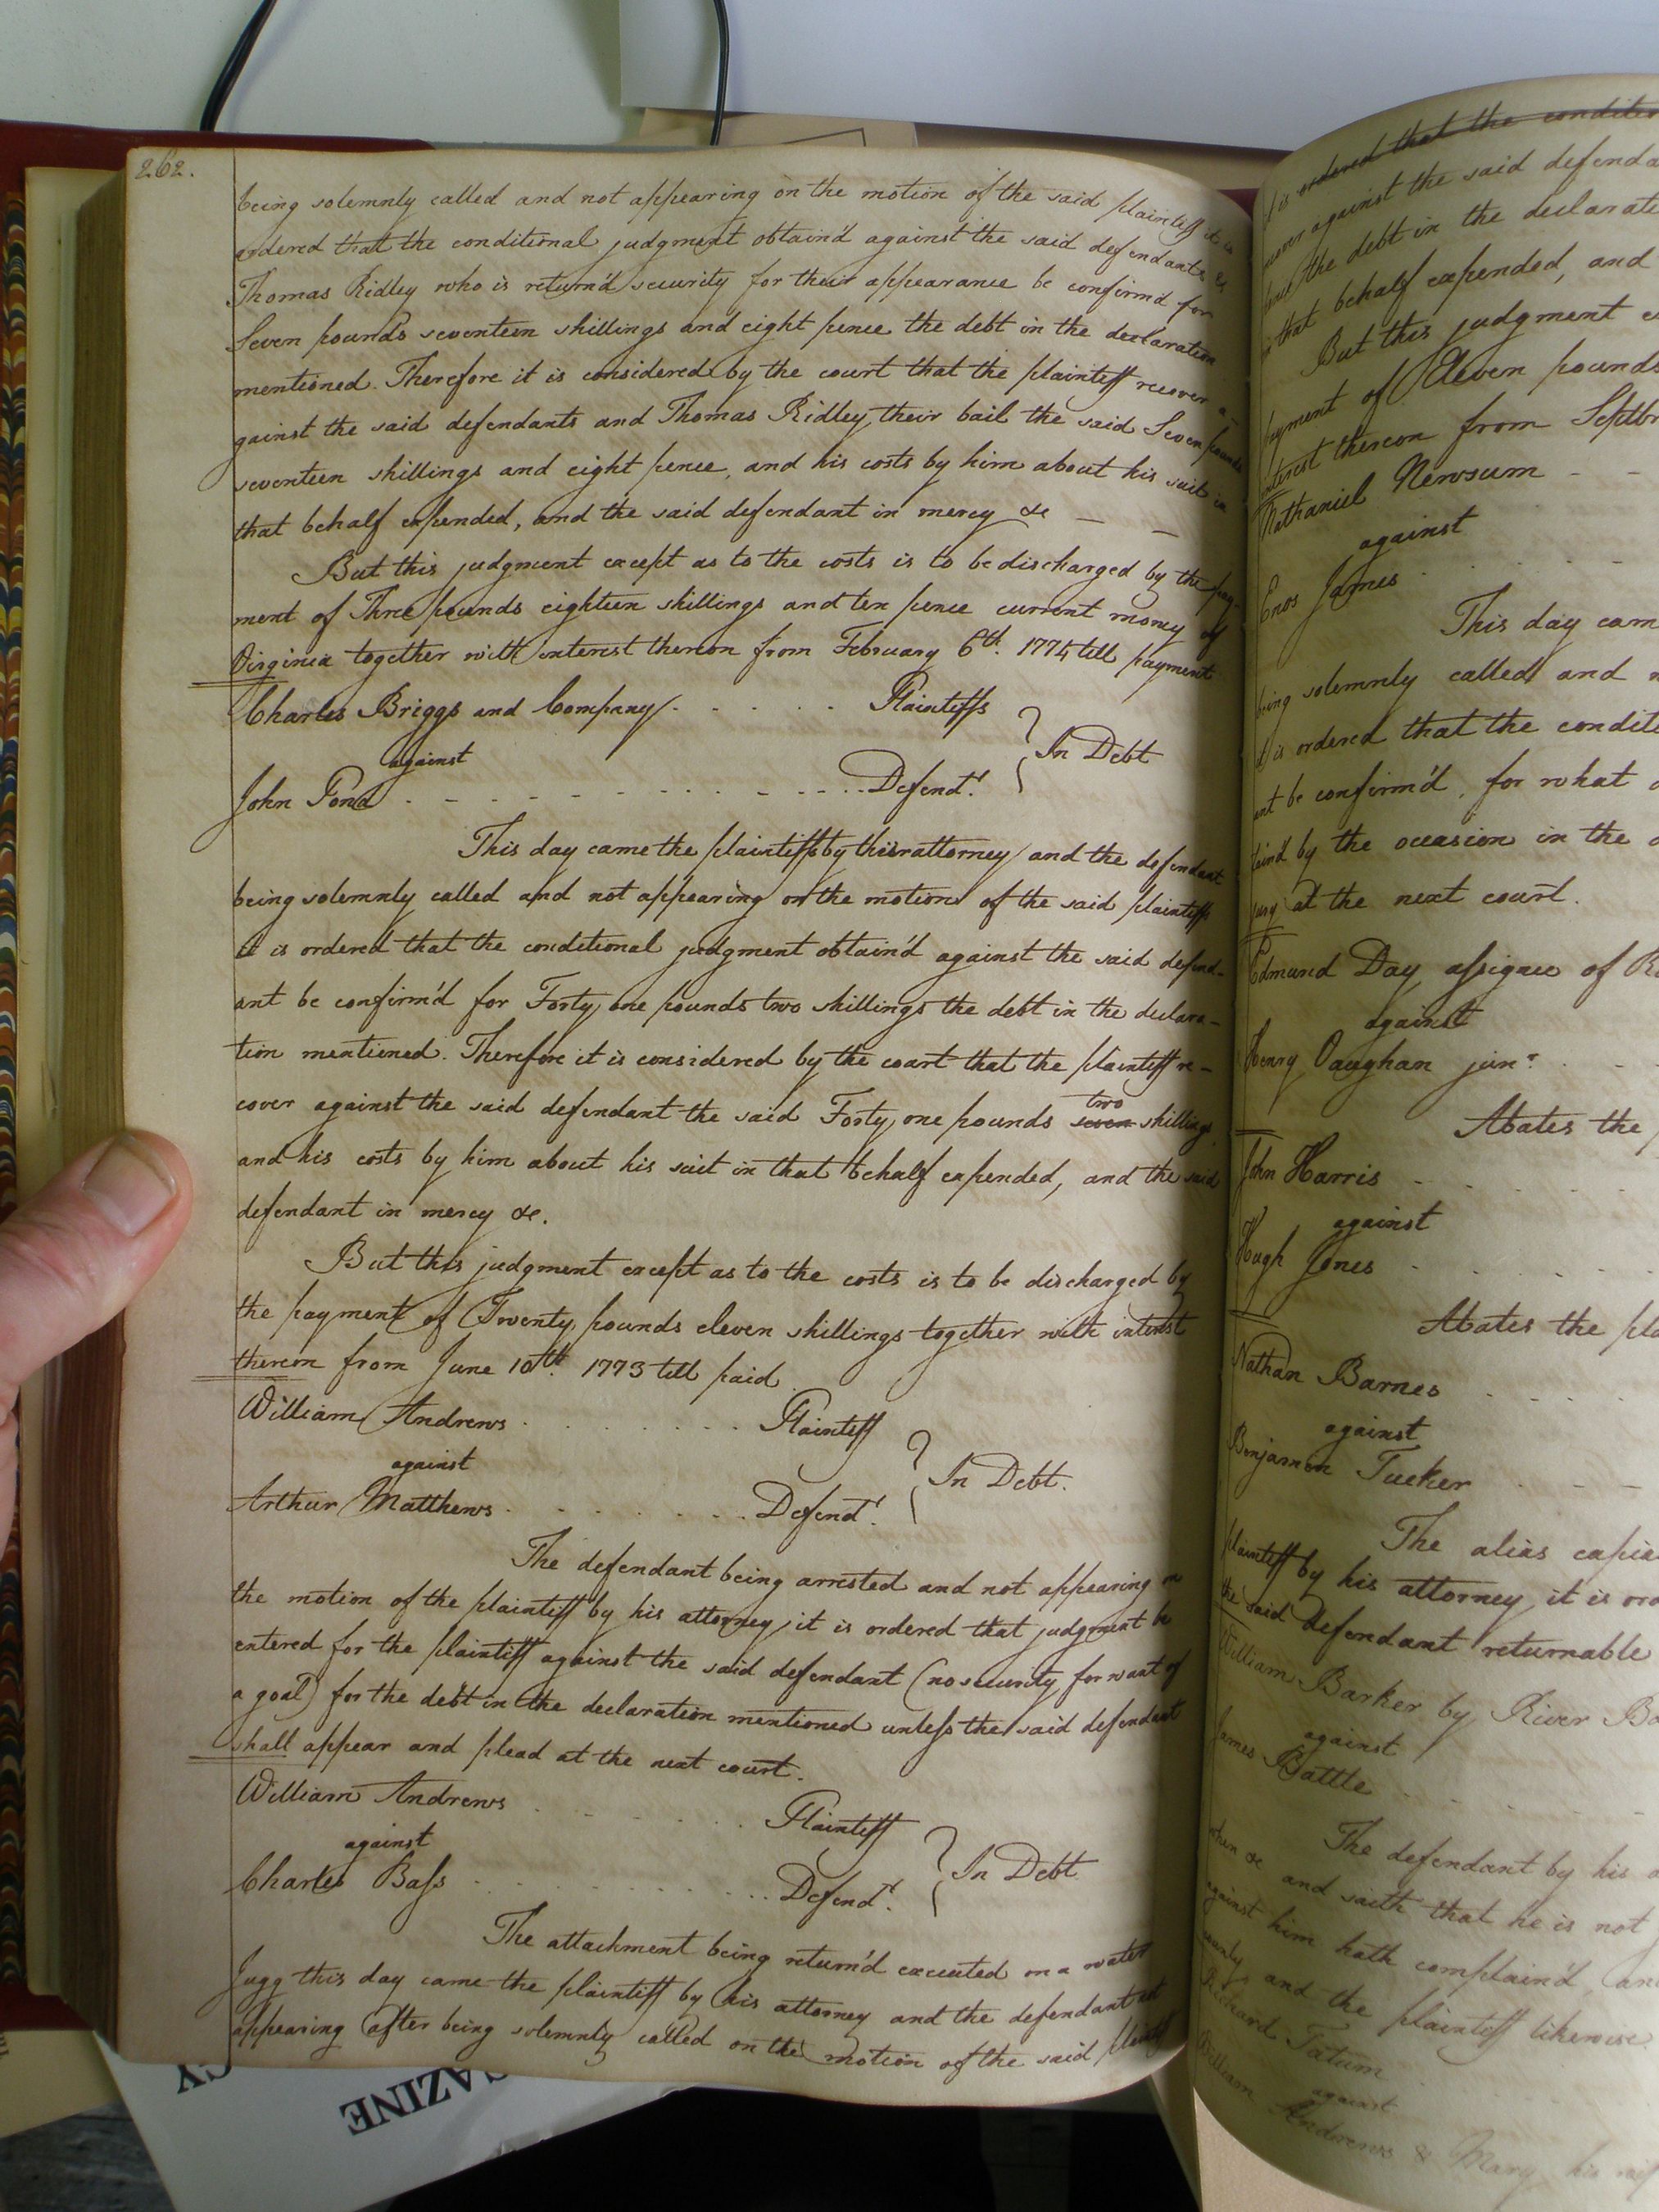 262.
being solemnly called and not appearing on the motion of the said plaintiff it is
ordered that the conditional judgment obtain'd against the said defendants &
Thomas Ridley who is return'd security for their appearance be confirm'd for
Seven pounds seventeen shillings and eight pence the debt in the declaration
mentioned. Therefore it is considered by the court that the plaintiff recover a-
gainst the said defendants and Thomas Ridley their bail the said Seven pounds
seventeen shillings and eight pence, and his costs by him about his suit in
that behalf expended, and the said defendant in mercy &c — —
But this judgment except as to the costs is to be discharged by the pay-
ment of Three pounds eighteen shillings and ten pence current money of
Virginia together with interest thereon from February 6th. 1774 till payment
Charles Briggs and Company . . . . . Plaintiffs
against
In Debt
John Pond . - - - - - - - - - . . . Defendt.
This day came the plaintiffs by their attorney and the defendant
being solemnly called and not appearing on the motion of the said plaintiffs
it is ordered that the conditional judgment obtain'd against the said defend-
ant be confirm'd for Forty one pounds two shillings the debt in the declara-
tion mentioned. Therefore it is considered by the court that the plaintiff re-
cover against the said defendant the said Forty one pounds seven two shillings
and his costs by him about his suit in that behalf expended, and the said
defendant in mercy &c.
But this judgment except as to the costs is to be discharged by
the payment of Twenty pounds eleven shillings together with interest
thereon from June 10th. 1773 till paid
William Andrews . . . . . . . . Plaintiff
against
In Debt.
Arthur Matthews . . . . . . . . Defendt.
The defendant being arrested and not appearing on
the motion of the plaintiff by his attorney it is ordered that judgment be
entered for the plaintiff against the said defendant (no security for want of
a goal) for the debt in the declaration mentioned unless the said defendant
shall appear and plead at the next court.
William Andrews . . . . . . . Plaintiff
against
In Debt
Charles Bass . . . . . . . . . Defendt.
The attachment being return'd executed on a water
Jugg this day came the plaintiff by his attorney and the defendant not
appearing after being solemnly called on the motion of the said plaintiff
is ordered that the condition
against the said defenda
the debt in the declarati
in that behalf expended, and
But this judgment e
payment of Eleven pounds
interest thereon from Septbr
Nathaniel Newsum - -
against
Enos James
This day cam
being solemnly called and n
it is ordered that the condit
ant be confirm'd, for what d
tain'd by the occasion in the d
jury at the next court.
Edmund Day assignee of R
against
Henry Vaughan junr.
Abates the p
John Harris
against
Hugh Jones
Abates the pla
Nathan Barnes
against
Benjamin Tucker
The alias capia
plaintiff by his attorney it is ord
the said defendant returnable
William Barker by River Ba
against
James Battle
The defendant by his a
when &c and saith that he is not
against him hath complain'd, an
and the plaintiff likewise
Richard Tatum
against
William Andrews & Mary his wif
AZINE
CY